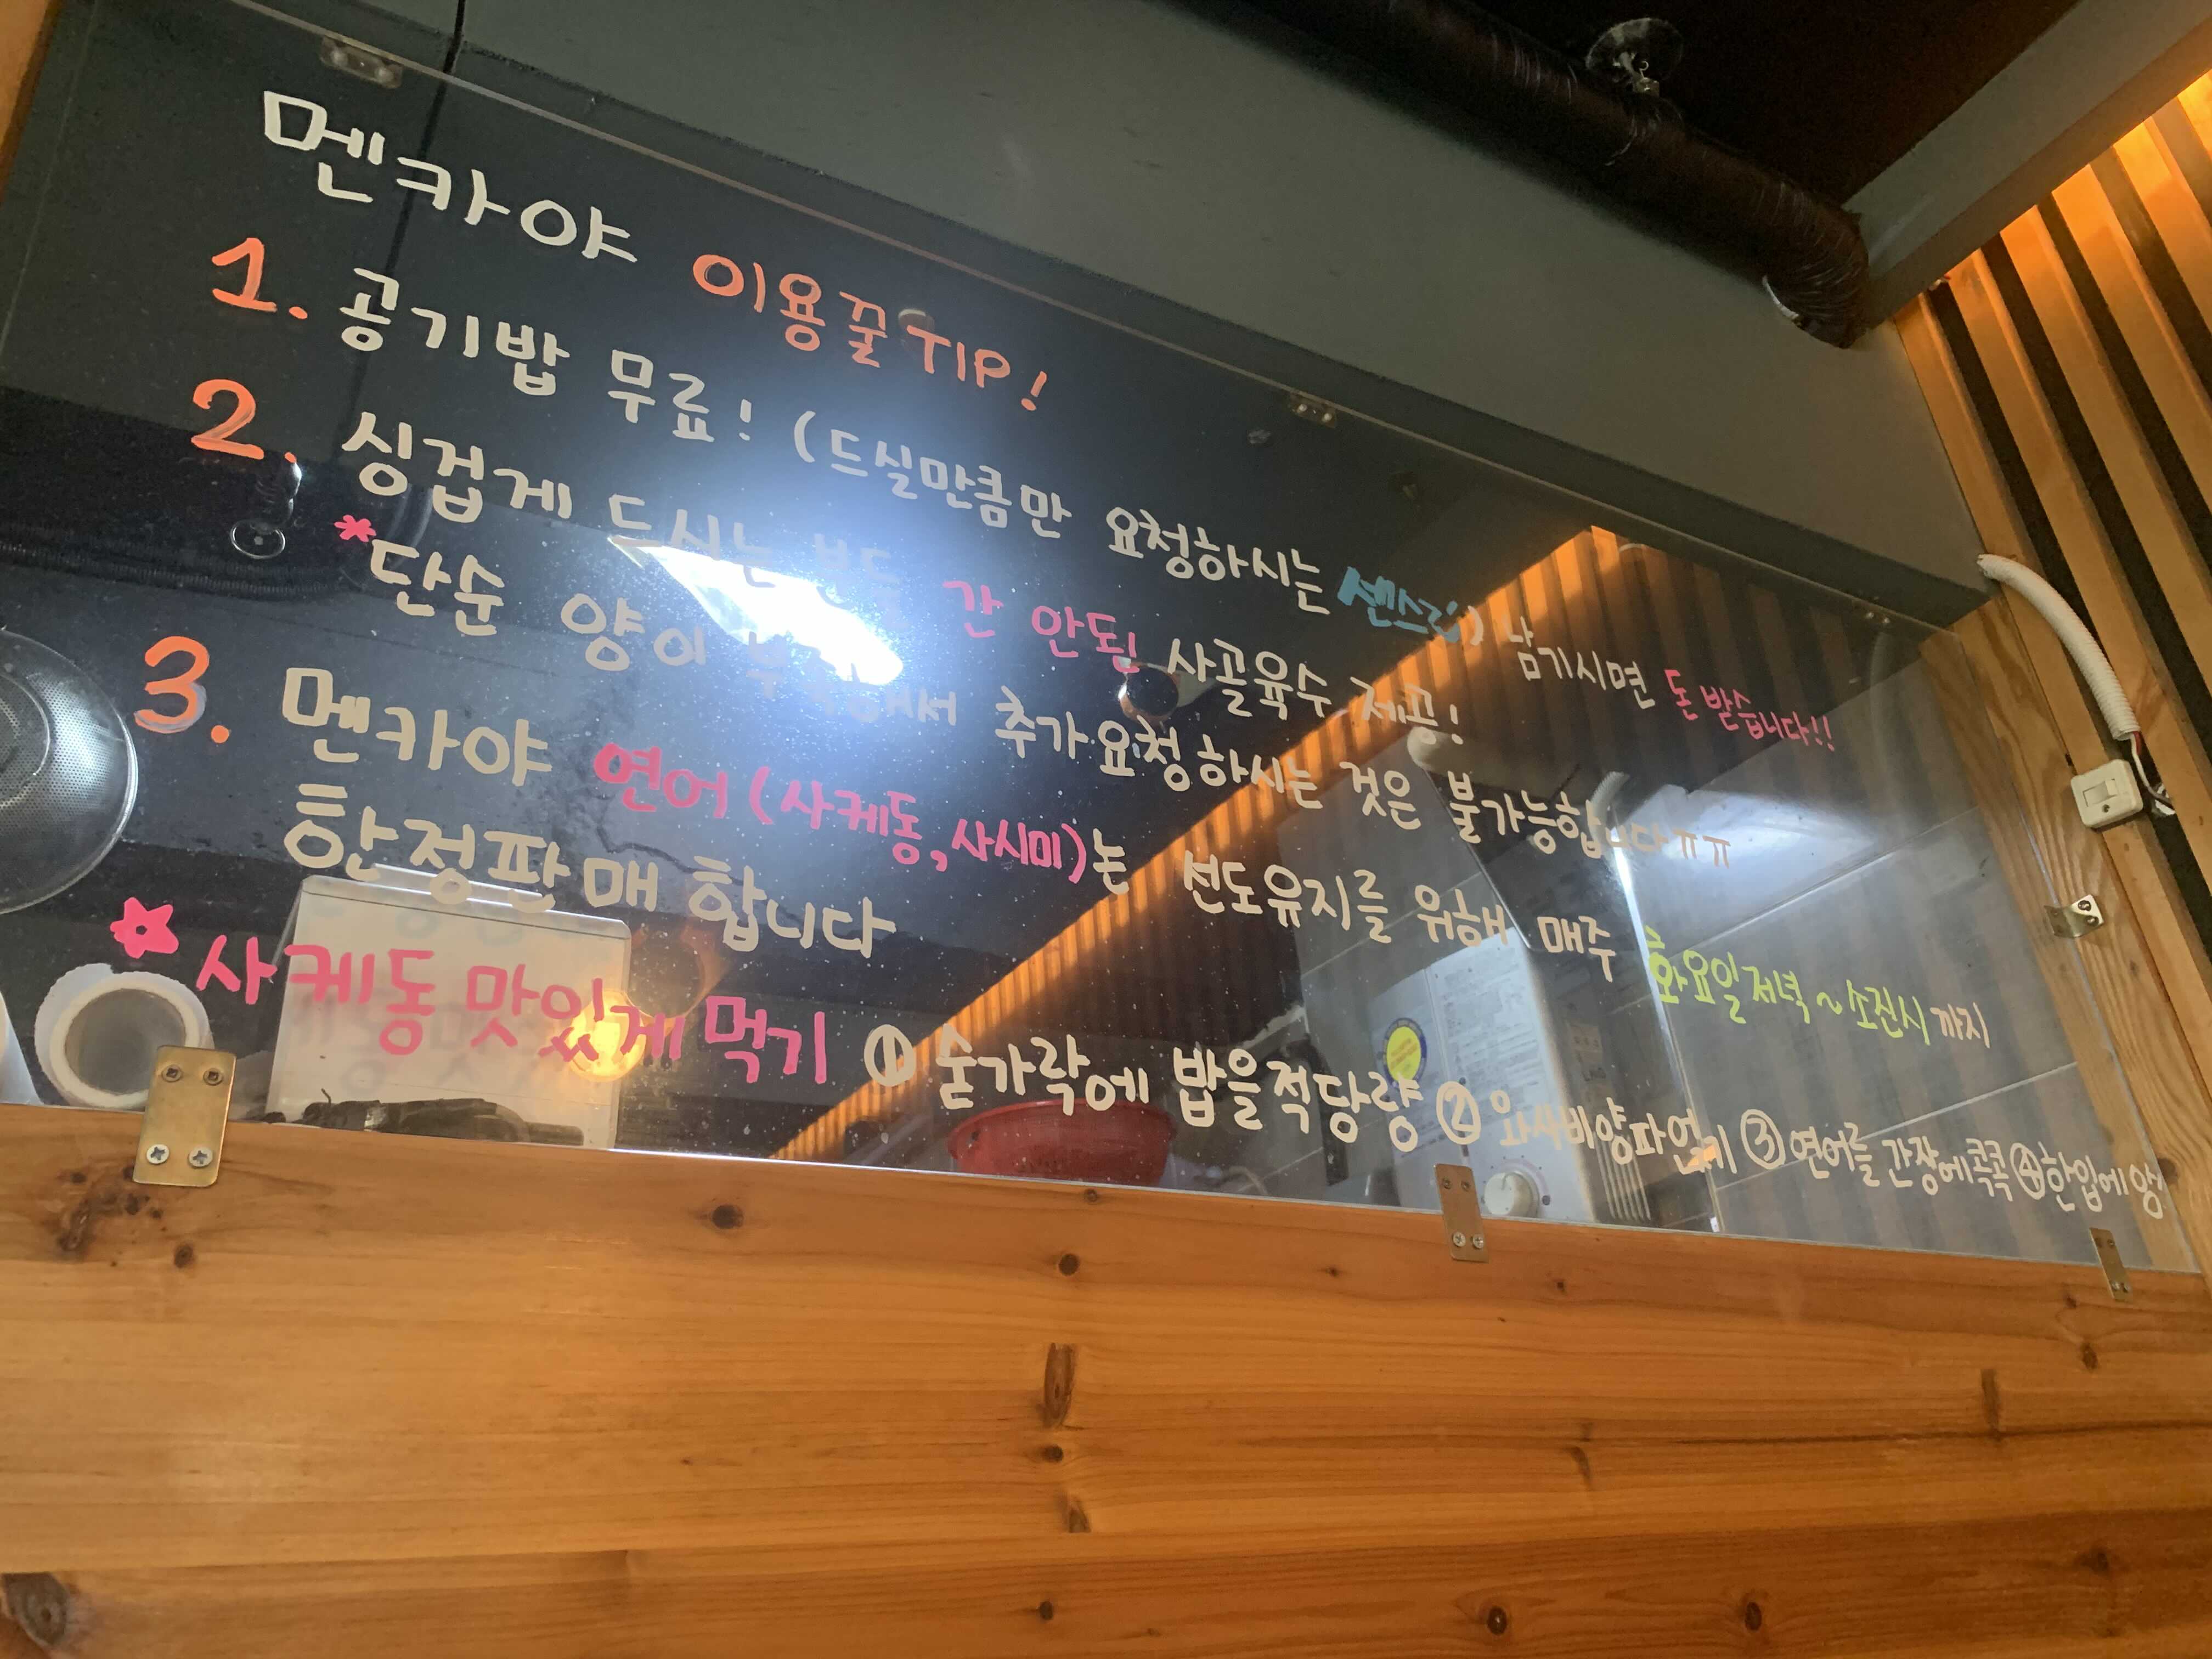 멘카야 이용꿀TIP!
1. 공기밥 무료! (드실만큼만 요청하시는 센스굿) 남기시면 돈 받습니다!!
2. 싱겁게 드시는 분들 간 안된 사골육수 제공!
*단순 양이 부족해서 추가요청하시는 것은 불가능합니다ㅠㅠ
3. 멘카야 연어(사케동,사시미)는 선도유지를 위해 매주 화요일저녁~소진시까지
한정판매 합니다
☆사케동 맛있게 먹기 ① 숟가락에 밥을적당량 ② 와사비양파얹기 ③ 연어를 간장에콕콕 ④한입에 앙